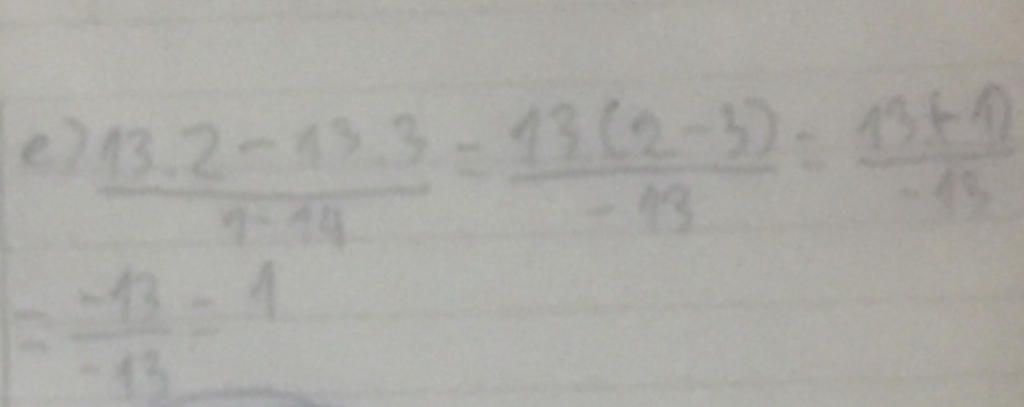 e) \frac{13.2-13.3}{1-14} = \frac{13(2-3)}{-13} = \frac{13(-1)}{-13}
= \frac{-13}{-13} = 1